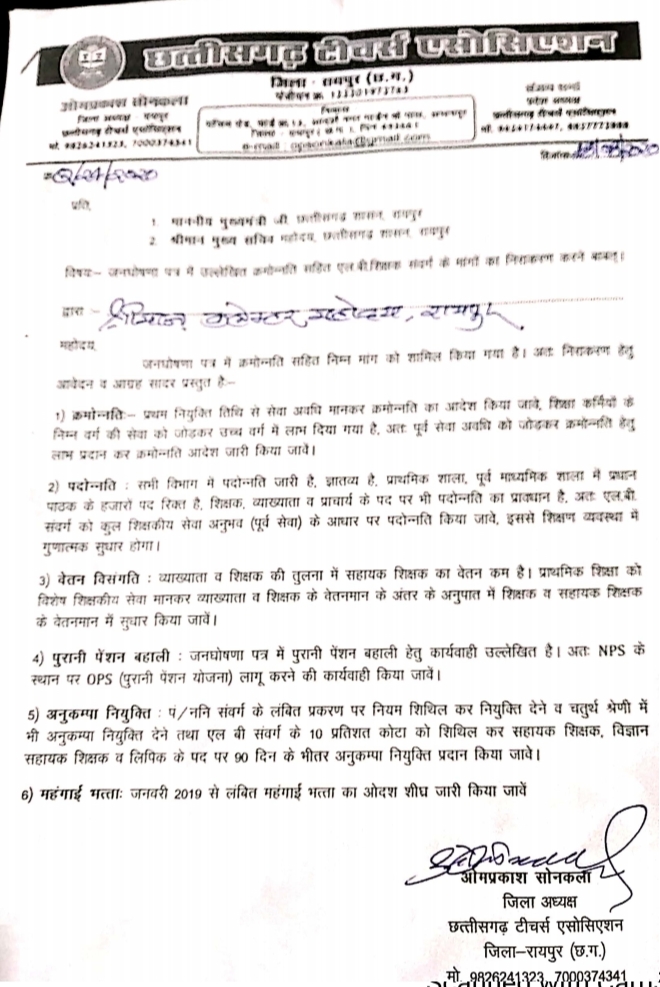 छत्तीसगढ़ टीचर्स एसोसिएशन
जिला - रायपुर (छ.ग.)
पंजीयन क्र. 122201973763
ओमप्रकाश सोनकला
जिला अध्यक्ष - रायपुर
छत्तीसगढ़ टीचर्स एसोसिएशन
मो. 9826241323, 7000374341
निवास
जिला - रायपुर ( छ.ग. ), पिन 493661
संजय शर्मा
प्रदेश अध्यक्ष
छत्तीसगढ़ टीचर्स एसोसिएशन
दिनांक
प्रति,
1. माननीय मुख्यमंत्री जी, छत्तीसगढ़ शासन, रायपुर
2. श्रीमान मुख्य सचिव महोदय, छत्तीसगढ़ शासन, रायपुर
विषय:- जनघोषणा पत्र में उल्लेखित क्रमोन्नति सहित एल.बी.शिक्षक संवर्ग के मांगों का निराकरण करने बाबत्।
द्वारा :- श्रीमान कलेक्टर महोदय, रायपुर
महोदय,
जनघोषणा पत्र में क्रमोन्नति सहित निम्न मांग को शामिल किया गया है। अतः निराकरण हेतु
आवेदन व आग्रह सादर प्रस्तुत है:-
1) क्रमोन्नति:- प्रथम नियुक्ति तिथि से सेवा अवधि मानकर क्रमोन्नति का आदेश किया जावे, शिक्षा कर्मियों के
निम्न वर्ग की सेवा को जोड़कर उच्च वर्ग में लाभ दिया गया है, अतः पूर्व सेवा अवधि को जोड़कर क्रमोन्नति हेतु
लाभ प्रदान कर क्रमोन्नति आदेश जारी किया जावें।
2) पदोन्नति : सभी विभाग में पदोन्नति जारी है, ज्ञातव्य है, प्राथमिक शाला, पूर्व माध्यमिक शाला में प्रधान
पाठक के हजारों पद रिक्त है, शिक्षक, व्याख्याता व प्राचार्य के पद पर भी पदोन्नति का प्रावधान है, अतः एल.बी.
संवर्ग को कुल शिक्षकीय सेवा अनुभव (पूर्व सेवा) के आधार पर पदोन्नति किया जावे, इससे शिक्षण व्यवस्था में
गुणात्मक सुधार होगा।
3) वेतन विसंगति : व्याख्याता व शिक्षक की तुलना में सहायक शिक्षक का वेतन कम है। प्राथमिक शिक्षा को
विशेष शिक्षकीय सेवा मानकर व्याख्याता व शिक्षक के वेतनमान के अंतर के अनुपात में शिक्षक व सहायक शिक्षक
के वेतनमान में सुधार किया जावें।
4) पुरानी पेंशन बहाली : जनघोषणा पत्र में पुरानी पेंशन बहाली हेतु कार्यवाही उल्लेखित है। अतः NPS के
स्थान पर OPS (पुरानी पेंशन योजना) लागू करने की कार्यवाही किया जावें।
5) अनुकम्पा नियुक्ति : पं/ननि संवर्ग के लंबित प्रकरण पर नियम शिथिल कर नियुक्ति देने व चतुर्थ श्रेणी में
भी अनुकम्पा नियुक्ति देने तथा एल बी संवर्ग के 10 प्रतिशत कोटा को शिथिल कर सहायक शिक्षक, विज्ञान
सहायक शिक्षक व लिपिक के पद पर 90 दिन के भीतर अनुकम्पा नियुक्ति प्रदान किया जावे।
6) महंगाई भत्ताः जनवरी 2019 से लंबित महंगाई भत्ता का ओदश शीघ्र जारी किया जावें
ओमप्रकाश सोनकला
जिला अध्यक्ष
छत्तीसगढ़ टीचर्स एसोसिएशन
जिला-रायपुर (छ.ग.)
मो. 9826241323, 7000374341